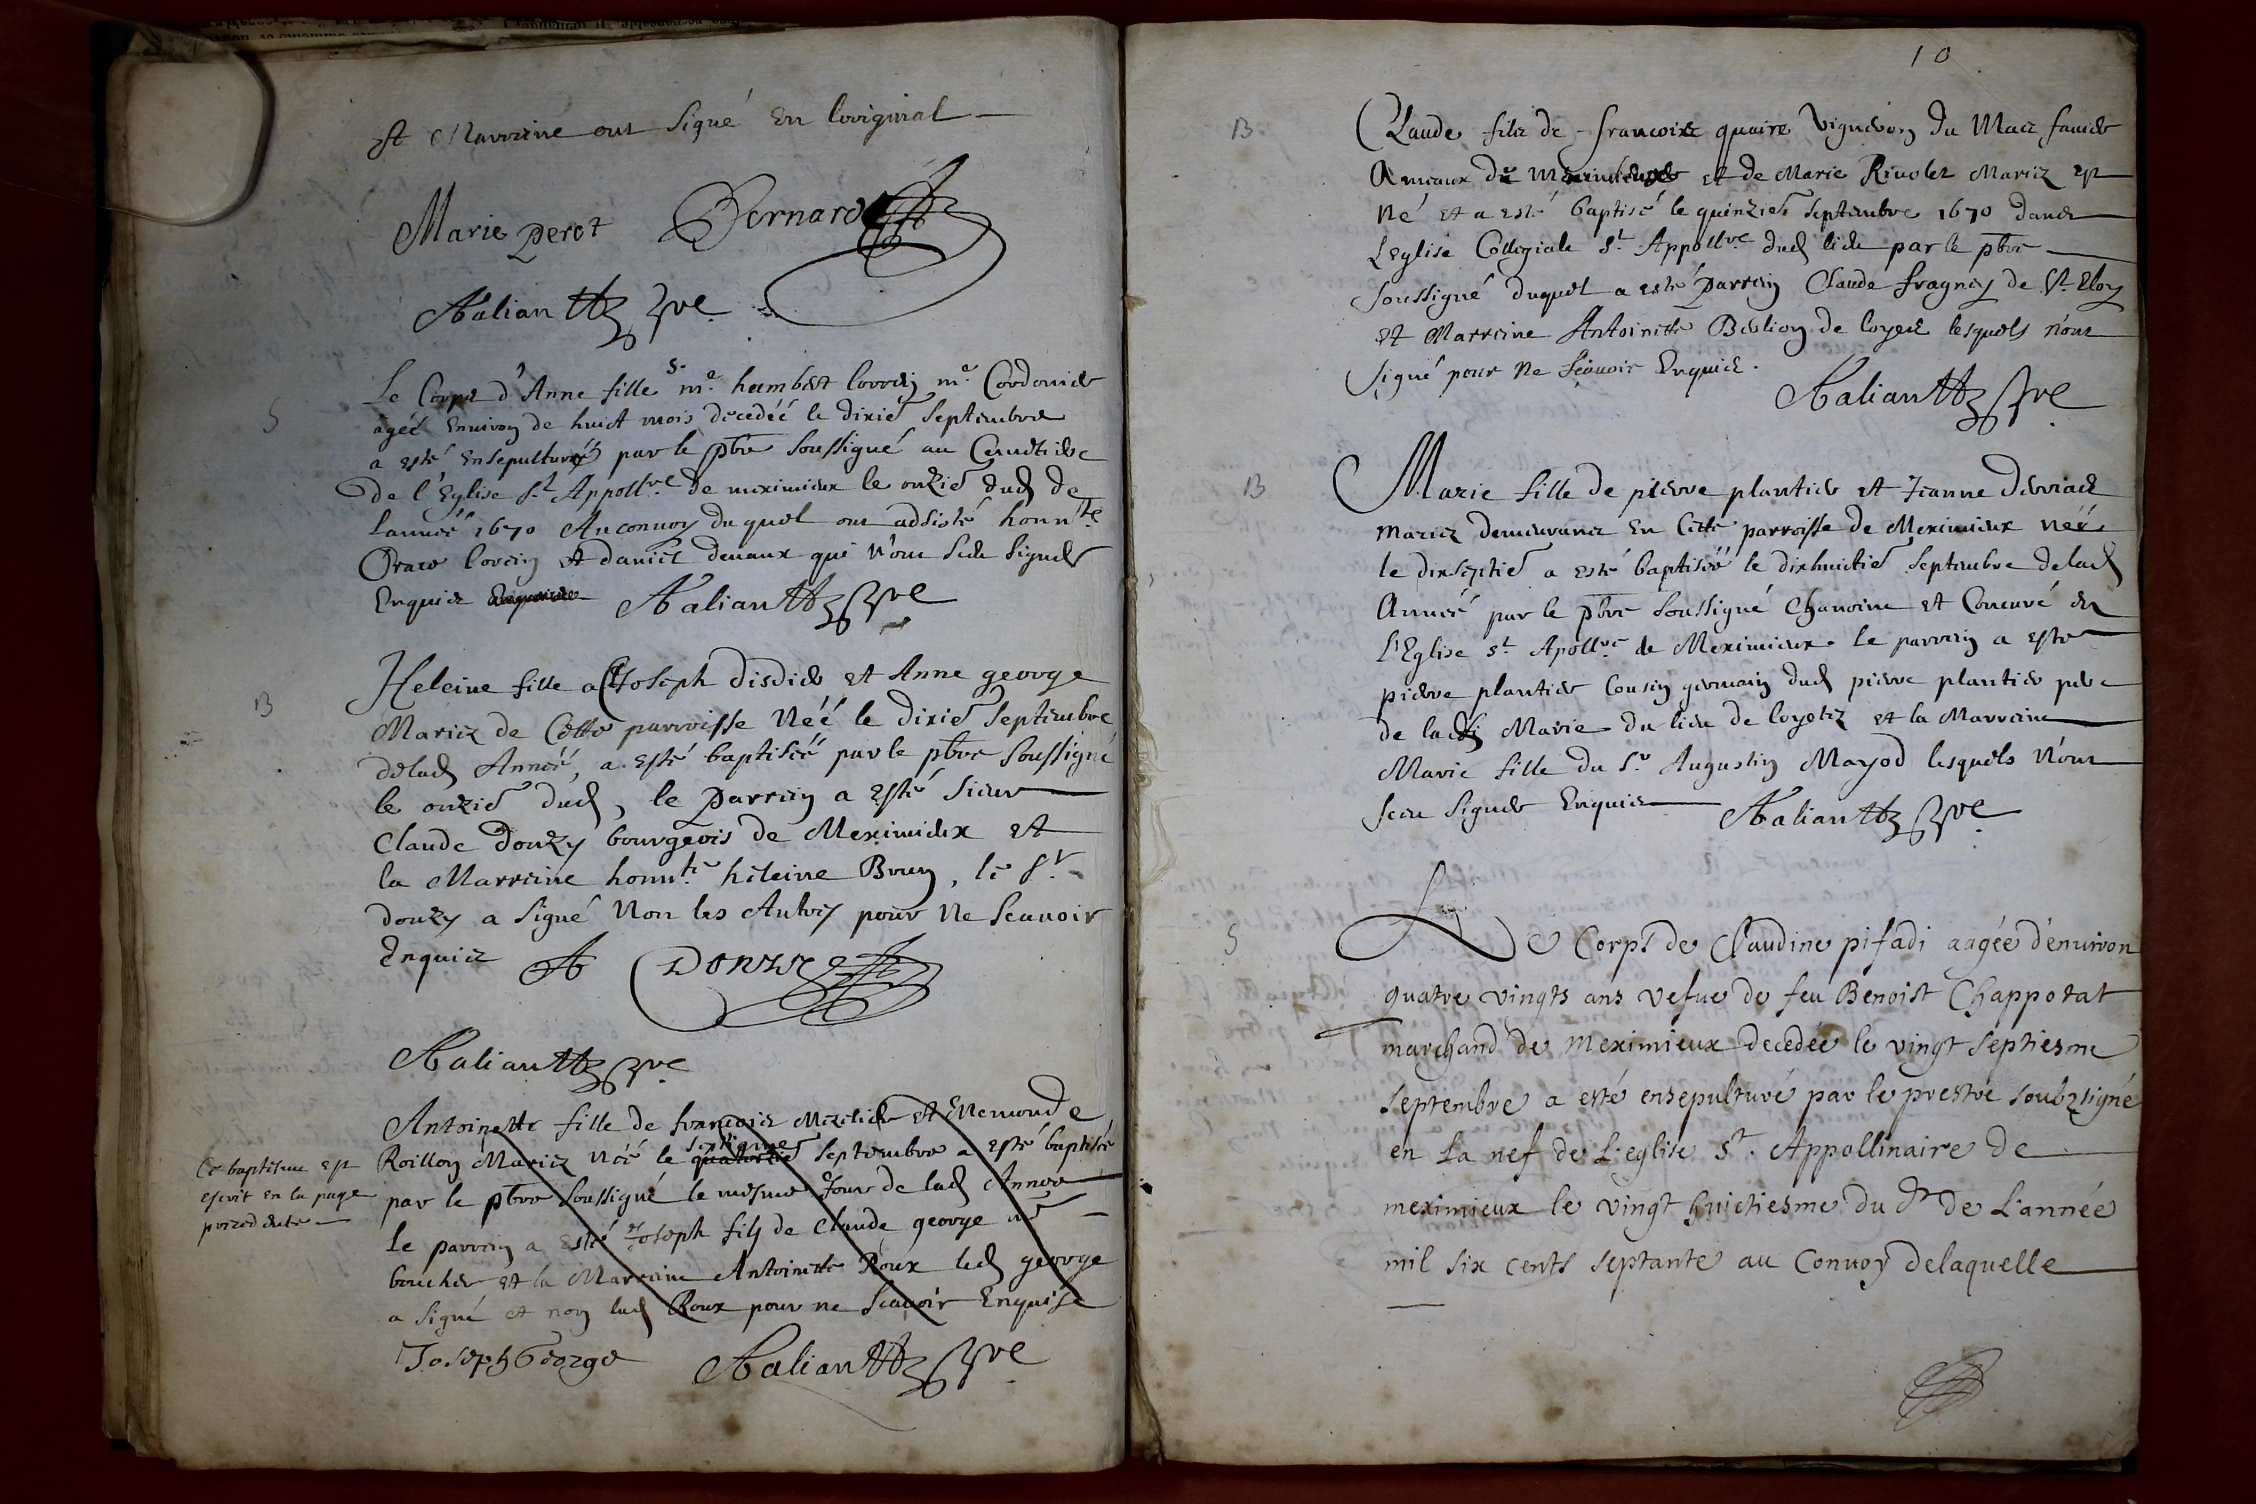 et Marreine ont signé en loriginal
Marie perot Bernard
Le Corps d'Anne fille Sr me humbert lorrein me Cordonier
agéé Enuiron de huict mois decedéé le dixie Septembre
a esté Ensepulturéé par le pbre soussigné au Cemetiere
de l'Eglise st Appollre de meximieux le onzie dud de
lanneé 1670 Au conuoy duquel ont adsisté honnte
lorrein et daniel deuaux qui n'ont sceu signer
Enquis
Heleine fille a Joseph disdier et Anne george
Mariez de Cette parroisse Néé le dixie Septembre
delad Anneé, a esté baptiséé par le pbre soussigné
le onzie dud, le Parrein a esté sieur
Claude Donzy bourgeois de Meximieux et
la Marreine honnte heleine Brun, le sr
donzy a signé Non les Autres pour Ne scauoir
Enquis
Donzy
Antoinette fille de francois et Nemonde
Roillon Mariez Néé le quatorzie septiesme Septembre a esté baptiséé
par le pbre soussigné le mesme Jour de lad Annee
Le parrein a esté Joseph fils de Claude george me
boucher et la Marreine Antoinette Roux led george
a signé et non lad Roux pour ne scauoir Enquise
Joseph George
Ce baptisme est
escrit en la page
precedente
10
B
Claude fils de francois quaire Vigneron du Mas
et de Marie Riuolet Mariez est
Né et a esté baptisé le quinzie septembre 1670 dans
Leglise Collegiale st Appollre dud lieu par le pbre
soussigné duquel a esté Parrein Claude fragney de St Eloy
et Marreine Antoinette de loyes lesquels n'ont
signé pour Ne scauoir Enquis.
B
Marie fille de pierre plantier et Jeanne
mariez demeurans En Cette parroisse de Meximieux Néé
le dixseptie a esté baptiséé le dixhuictie septembre delad
Anneé par le pbre soussigné Chanoine et Concuré en
L'Eglise st Apollre de Meximieux. le parrein a esté
pierre plantier Cousin germain dud pierre plantier pere
de lad Marie du lieu de loyetz et la Marreine
Marie fille du sr Augustin Mayod lesquels N'ont
sceu signer Enquis
S
Le Corps de Claudine pifadi aagée d'enuiron
quatre vingts ans vefue de feu Benoist Chappotat
marchand de meximieux decedée le vingt septiesme
septembre a esté ensepulturé par le prestre soubzsigné
en La nef de L'eglise St. Appollinaire de
meximieux le vingt huictiesme du dt de L'année
mil six cents septante au Conuoy delaquelle